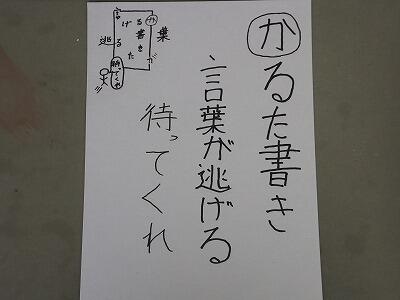 かるた書き
言葉が逃げる
待ってくれ
葉
か
が
る書きた
げ
る
言
逃
待ってくれ